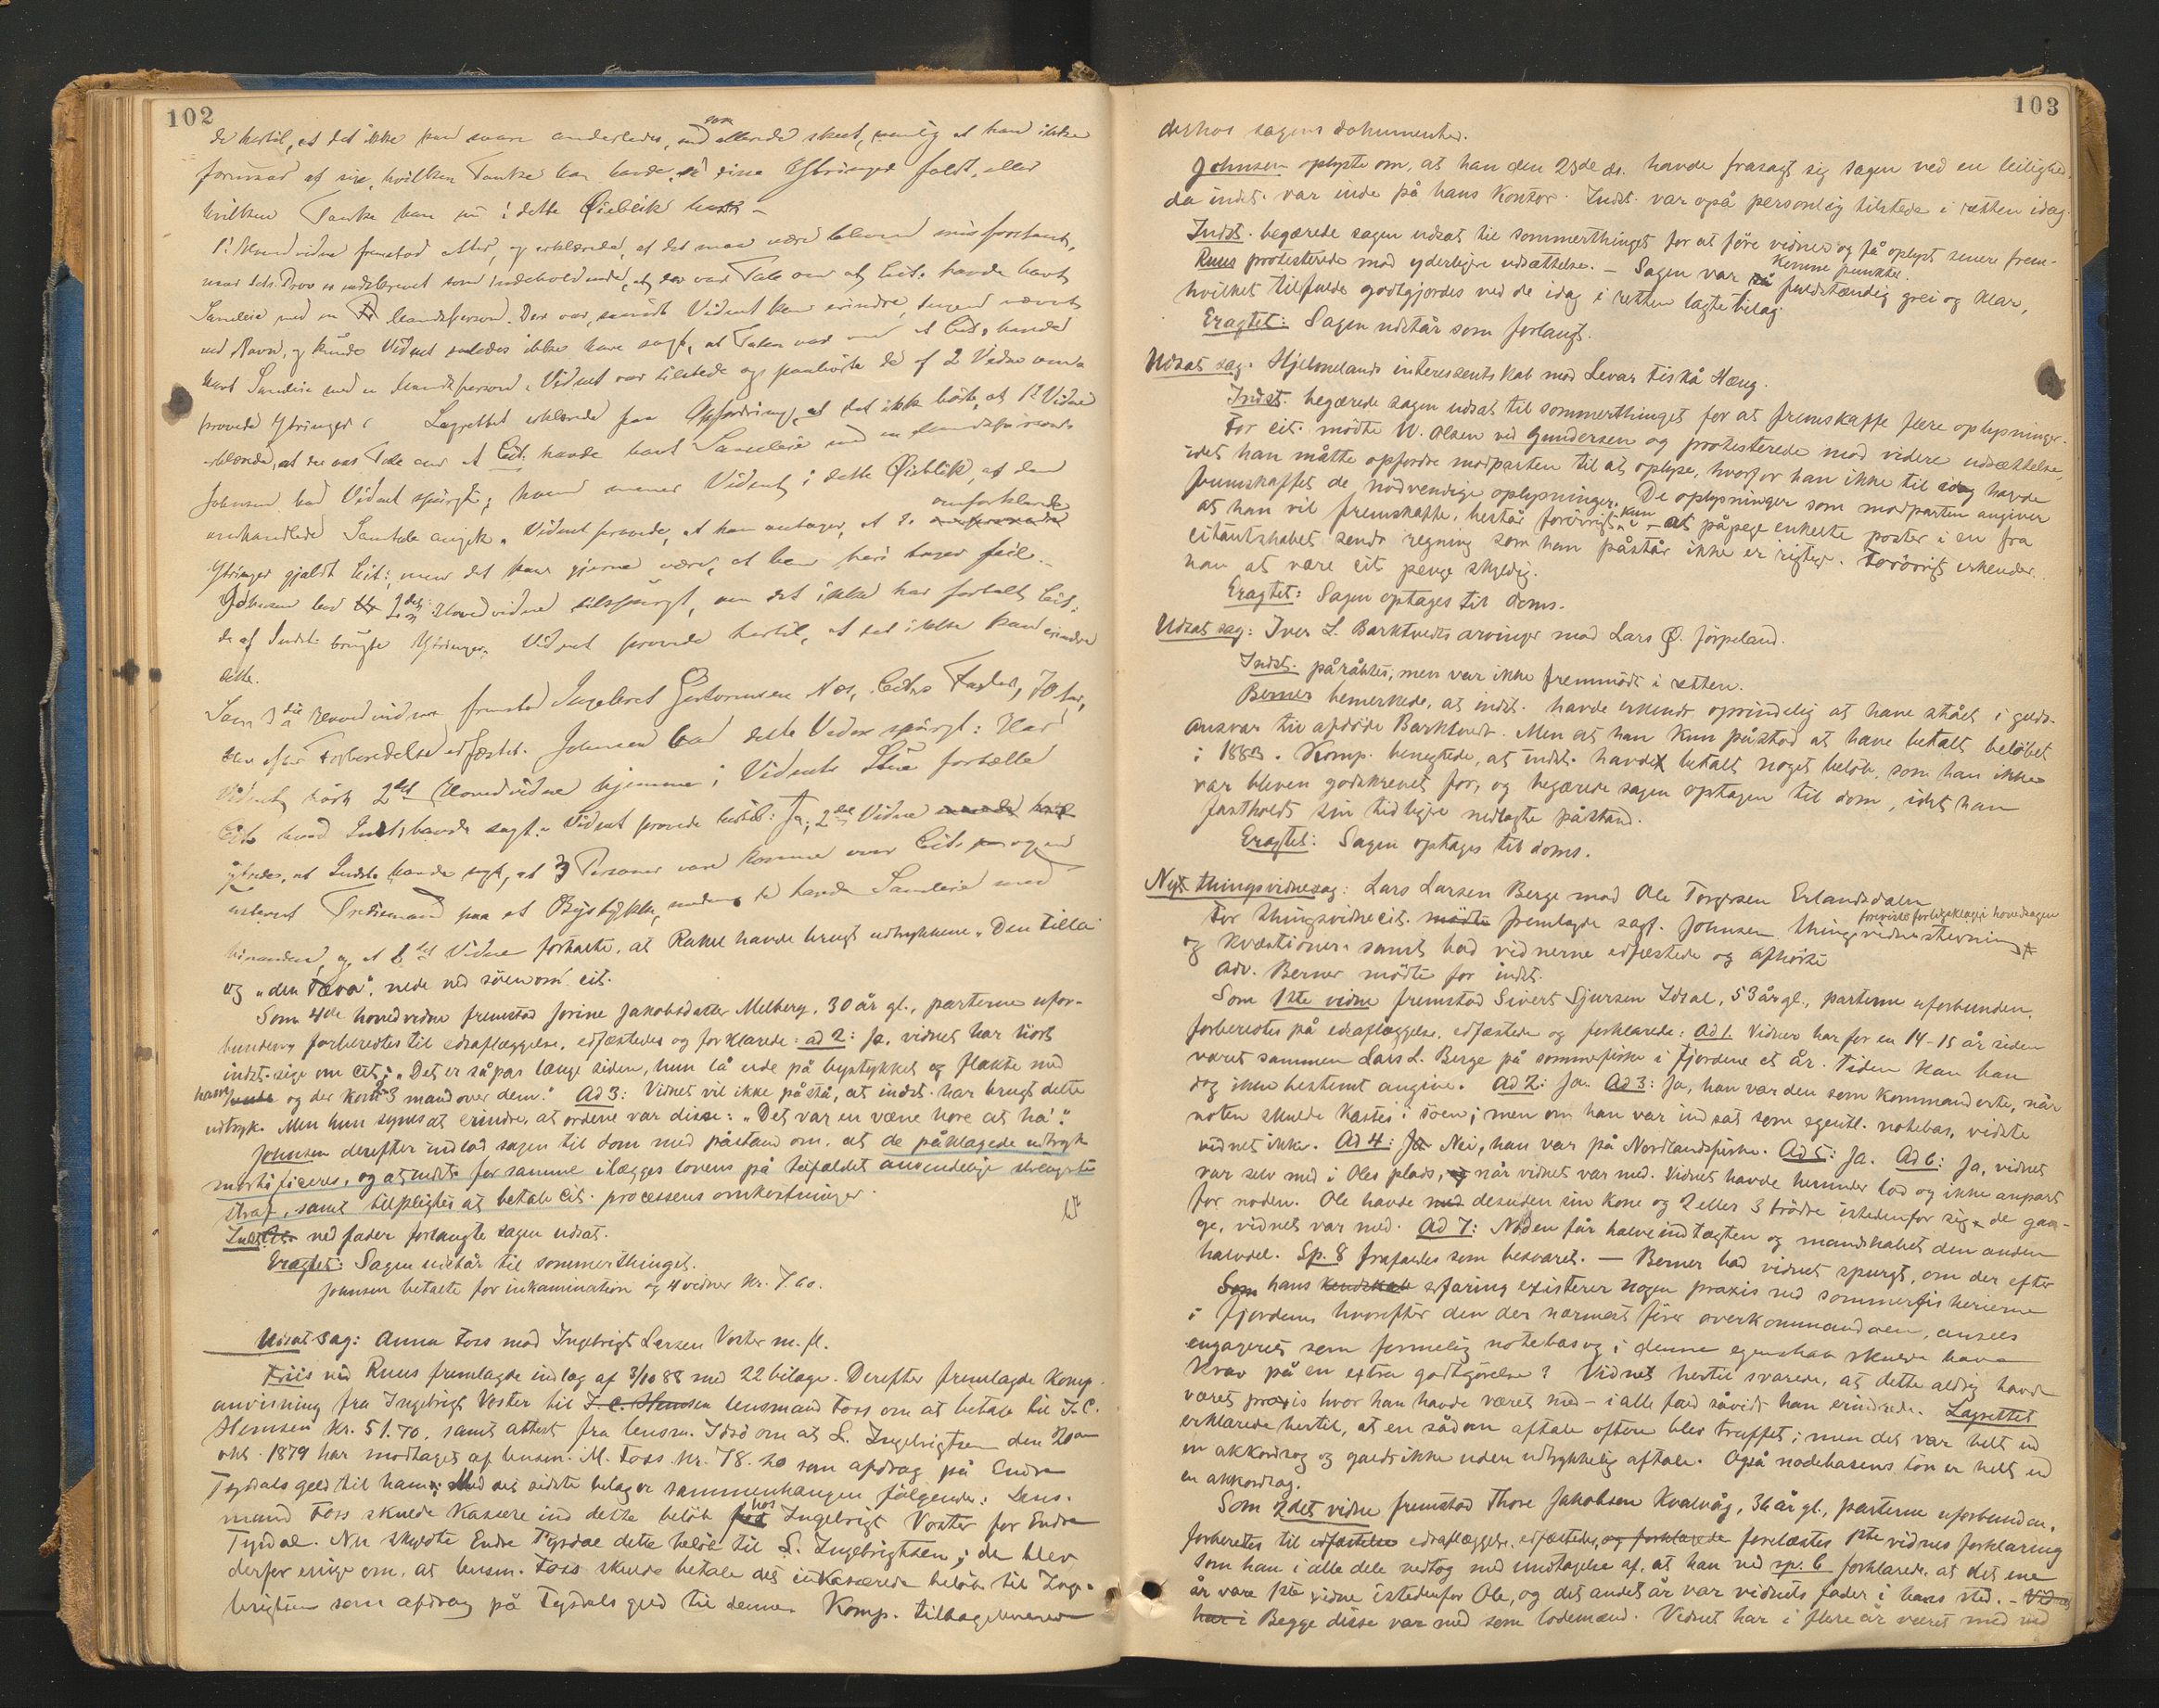 102
de hertil, at det ikke kan svare anderledes, end som allerede skeet, nemlig at han ikke
formaar at sige, hvilken Tanke han havde, da disse Ytringer faldt, eller
hvilken Tanke han nu i dette Øieblik har –
1ste Hovedvidne fremstod atter, og erklærede, at det maa være bleven misforstaaet,
naar dets Prov er nedskrevet som indeholdende, at der var Tale om at Cit. havde havt
Samleie med en Mandsperson. Der var, saavidt Vidnet kan erindre, Ingen nævnt
ved Navn, og kunde Vidnet saaledes ikke have sagt, at Talen var om at Cit. havde
havt Samleie med en Mandsperson. Vidnet var tilstede og paahørte de af 2 Vidne om-
provede Ytringer. Lagrettet erklærede paa Opfordring, at det ikke hørte, at 1ste Vidne
erklærede, at der var Tale om at Cit. havde havt Samleie med en Mandsperson.
Johnsen bad Vidnet spurgt; hvem mener Vidnet i dette Øieblik, at den
omhandlede Samtale angik. Vidnet provede, at han antager, at de omforklarede
Ytringer gjaldt Cit.; men det kan gjerne være, at han heri tager feil. –
Johnsen bad 2det Hovedvidne tilspurgt, om det ikke har fortalt Cit.
de af Indst. brugte Ytringer. Vidnet provede hertil, at det ikke kan erindre
dette.
Som 3die Hovedvidne fremstod Ingeborg Nes, Citas Faster, 70 Aar,
blev efter Forberedelse edfæstet. Johnsen bad dette Vidne spurgt: Har
Vidnet hørt 2det Hovedvidne hjemme i Vidnets Stue fortælle
Cit. hvad Indst. havde sagt. Vidnet provede hertil: Ja; 2det Vidne
ytrede, at Indst. havde sagt, at 3 Personer vare komne over Cit. og en
Trediemand paa et Bygstykke, medens de havde Samleie med
hinanden, og at 2det Vidne fortalte, at Rakel havde brugt udtrykkene "Den Tilla"
og "den Tæva", nede ved søen om cit.
Som 4de hovedvidne fremstod Jorine Jakobsdatter Melberg, 30 år gl., parterne ufor-
bunden, forberedtes til edraflæggelse, edfæstedes og forklarede: ad 2: Ja, vidnet har hørt
indst. sige om cit.: "Det er såpas længe siden, hun lå ude på bygstykket og flakte med
ham og der kom 3 mand over dem." Ad 3: Vidnet vil ikke påstå, at indst. har brugt dette
udtryk. Men hun synes at erindre, at ordene var disse: "Det var en væne hore at ha'."
Johnsen derefter indlod sagen til dom med påstand om, at de påklagede udtryk
mortificeres, og at indst. for samme ilægges lovens på tilfældet anvendelige strengeste
straf, samt tilpligtes at betale cit. processens omkostninger.
Indst. ved fader forlangte sagen udsat.
Eragtet: Sagen udstår til sommerthinget.
Johnsen betalte for inkamination og 4 vidner kr. 7.60.
Udsat sag: Anna Foss mod Ingebrigt Larsen Voster m. fl.
Friis ved Ruus fremlagde indlæg af 3/10 88 med 22 bilage. Derefter fremlagde Komp.
anvisning fra Ingebrigt Voster til J. C. Hemsen lensmand Foss om at betale til J. C.
Hemsen kr. 51.70, samt attest fra lensm. Idsö om at L. Ingebrigtsen den 20de
okt. 1879 har modtaget af lensm. M. Foss kr. 78.20 som afdrag på Endre
Tysdals gjeld til ham. Med det sidste bilag er sammenhængen følgende: Lens-
mand Foss skulde kassere ind dette beløb hos Ingebrigt Voster for Endre
Tysdal. Nu skyldte Endre Tysdal dette beløb til L. Ingebrigtsen; de blev
derfor enige om, at lensm. Foss skulde betale det inkasserede beløb til Inge-
brigtsen som afdrag på Tysdals gjeld til denne. Komp. tilbageleverede
103
derhos sagens dokumenter.
Johnsen oplyste om, at han den 23de ds. havde frasagt sig sagen ved en leilighed,
da indst. var inde på hans kontor. Indst. var også personlig tilstede i retten idag.
Indst. begærede sagen udsat til sommerthinget for at føre vidner og få oplyst senere frem-
komne punkter.
Ruus protesterede mod yderligere udsættelse. – Sagen var så fuldstændig grei og klar,
hvilket tilfulde godtgjordes ved de idag i retten lagte bilag.
Eragtet: Sagen udstår som forlangt.
Udsat sag. Hjelmelands interessentskab mod Levar Fiskå Haug.
Indst. begærede sagen udsat til sommerthinget for at fremskaffe flere oplysninger.
For cit. mødte W. Olsen ved Gundersen og protesterede mod videre udsættelse,
idet han måtte opfordre modparten til at oplyse, hvorfor han ikke til idag havde
fremskaffet de nødvendige oplysninger. De oplysninger som modparten angiver
at han vil fremskaffe, består forøvrigt kun i at påpege enkelte poster i en fra
citantskabet sendt regning som han påstår ikke er rigtige. Forøvrigt erkender
han at være cit. penge skyldig.
Eragtet: Sagen optages til doms.
Udsat sag: Iver L. Barktvedts arvinger mod Lars Ø. Jörpeland.
Indst. påråbtes, men var ikke fremmødt i retten.
Berner bemerkede, at indst. havde erkendt oprindelig at have stået i gjelds-
ansvar til afdøde Barktvedt. Men at han kun påstod at have betalt beløbet
i 1883. Komp. benegtede, at indst. havde betalt noget beløb, som han ikke
var bleven godskrevet for, og begærede sagen optagen til dom, idet han
fastholdt sin tidligere nedlagte påstand.
Eragtet: Sagen optages til doms.
Nyt thingsvidnesag: Lars Larsen Berge mod Ole Torgersen Erlandsdalen
For thingsvidnecit. mødte fremlagde sagf. Johnsen thingsvidnestevning foreviste forligsklage i hovedsagen
og kvæstioner samt bad vidnerne edfæstede og afhørte
Adv. Berner mødte for indst.
Som 1ste vidne fremstod Sivert Sjursen Idsal, 53 år gl., parterne uforbunden,
forberedtes på edraflæggelse, edfæstede og forklarede: Ad 1. Vidnet har for en 14–15 år siden
været sammen Lars L. Berge på sommerfiske i fjordene et år. Tiden kan han
dog ikke bestemt angive. Ad 2: Ja. Ad 3: Ja, han var den som kommanderte, når
noten skulde kastes i søen; men om han var indsat som egentl. notebas, vidste
vidnet ikke. Ad 4: Ja Nei, han var på Nordlandsfiske. Ad 5: Ja. Ad 6: Ja, vidnet
var selv med i Oles plads, når vidnet var med. Vidnet havde herunder lod og ikke anpart
for noden. Ole havde med desuden sin kone og 2 eller 3 brødre istedenfor sig de gan-
ge, vidnet var med. Ad 7: Noden får halve indtægten og mandskabet den anden
halvdel. Sp. 8 frafaldes som besvaret. – Berner bad vidnet spurgt, om der efter
Som hans kendskab erfaring existerer nogen praxis ved sommerfiskerierne
i fjordene hvorefter den der nærmest fører overkommandoen, ansees
engageret som formelig notebas og i denne egenskab skulde have
krav på en extra godtgörelse? Vidnet hertil svarede, at dette aldrig havde
været praxis hvor han havde været med – i alle fald såvidt han erindrede. Lagrettet
erklærede hertil, at en sådan aftale oftere blev truffet; men det var helt ud
en akkordsag og gjældt ikke uden udtrykkelig aftale. Også nodebasens løn er helt ud
en akkordsag.
Som 2det vidne fremstod Thore Jakobsen Kvalvåg, 36 år gl., parterne uforbunden,
forberedtes til edfæstelse edraflæggelse, edfæstedes, og forklarede forelæstes 1ste vidnes forklaring
som han i alle dele vedtog med undtagelse af, at han ved sp. 6 forklarede, at det ene
år vare 1ste vidne istedenfor Ole, og det andet år var vidnets fader i hans sted. – Vidnet
har i Begge disse var med som lodemænd. Vidnet har i flere år været med ved